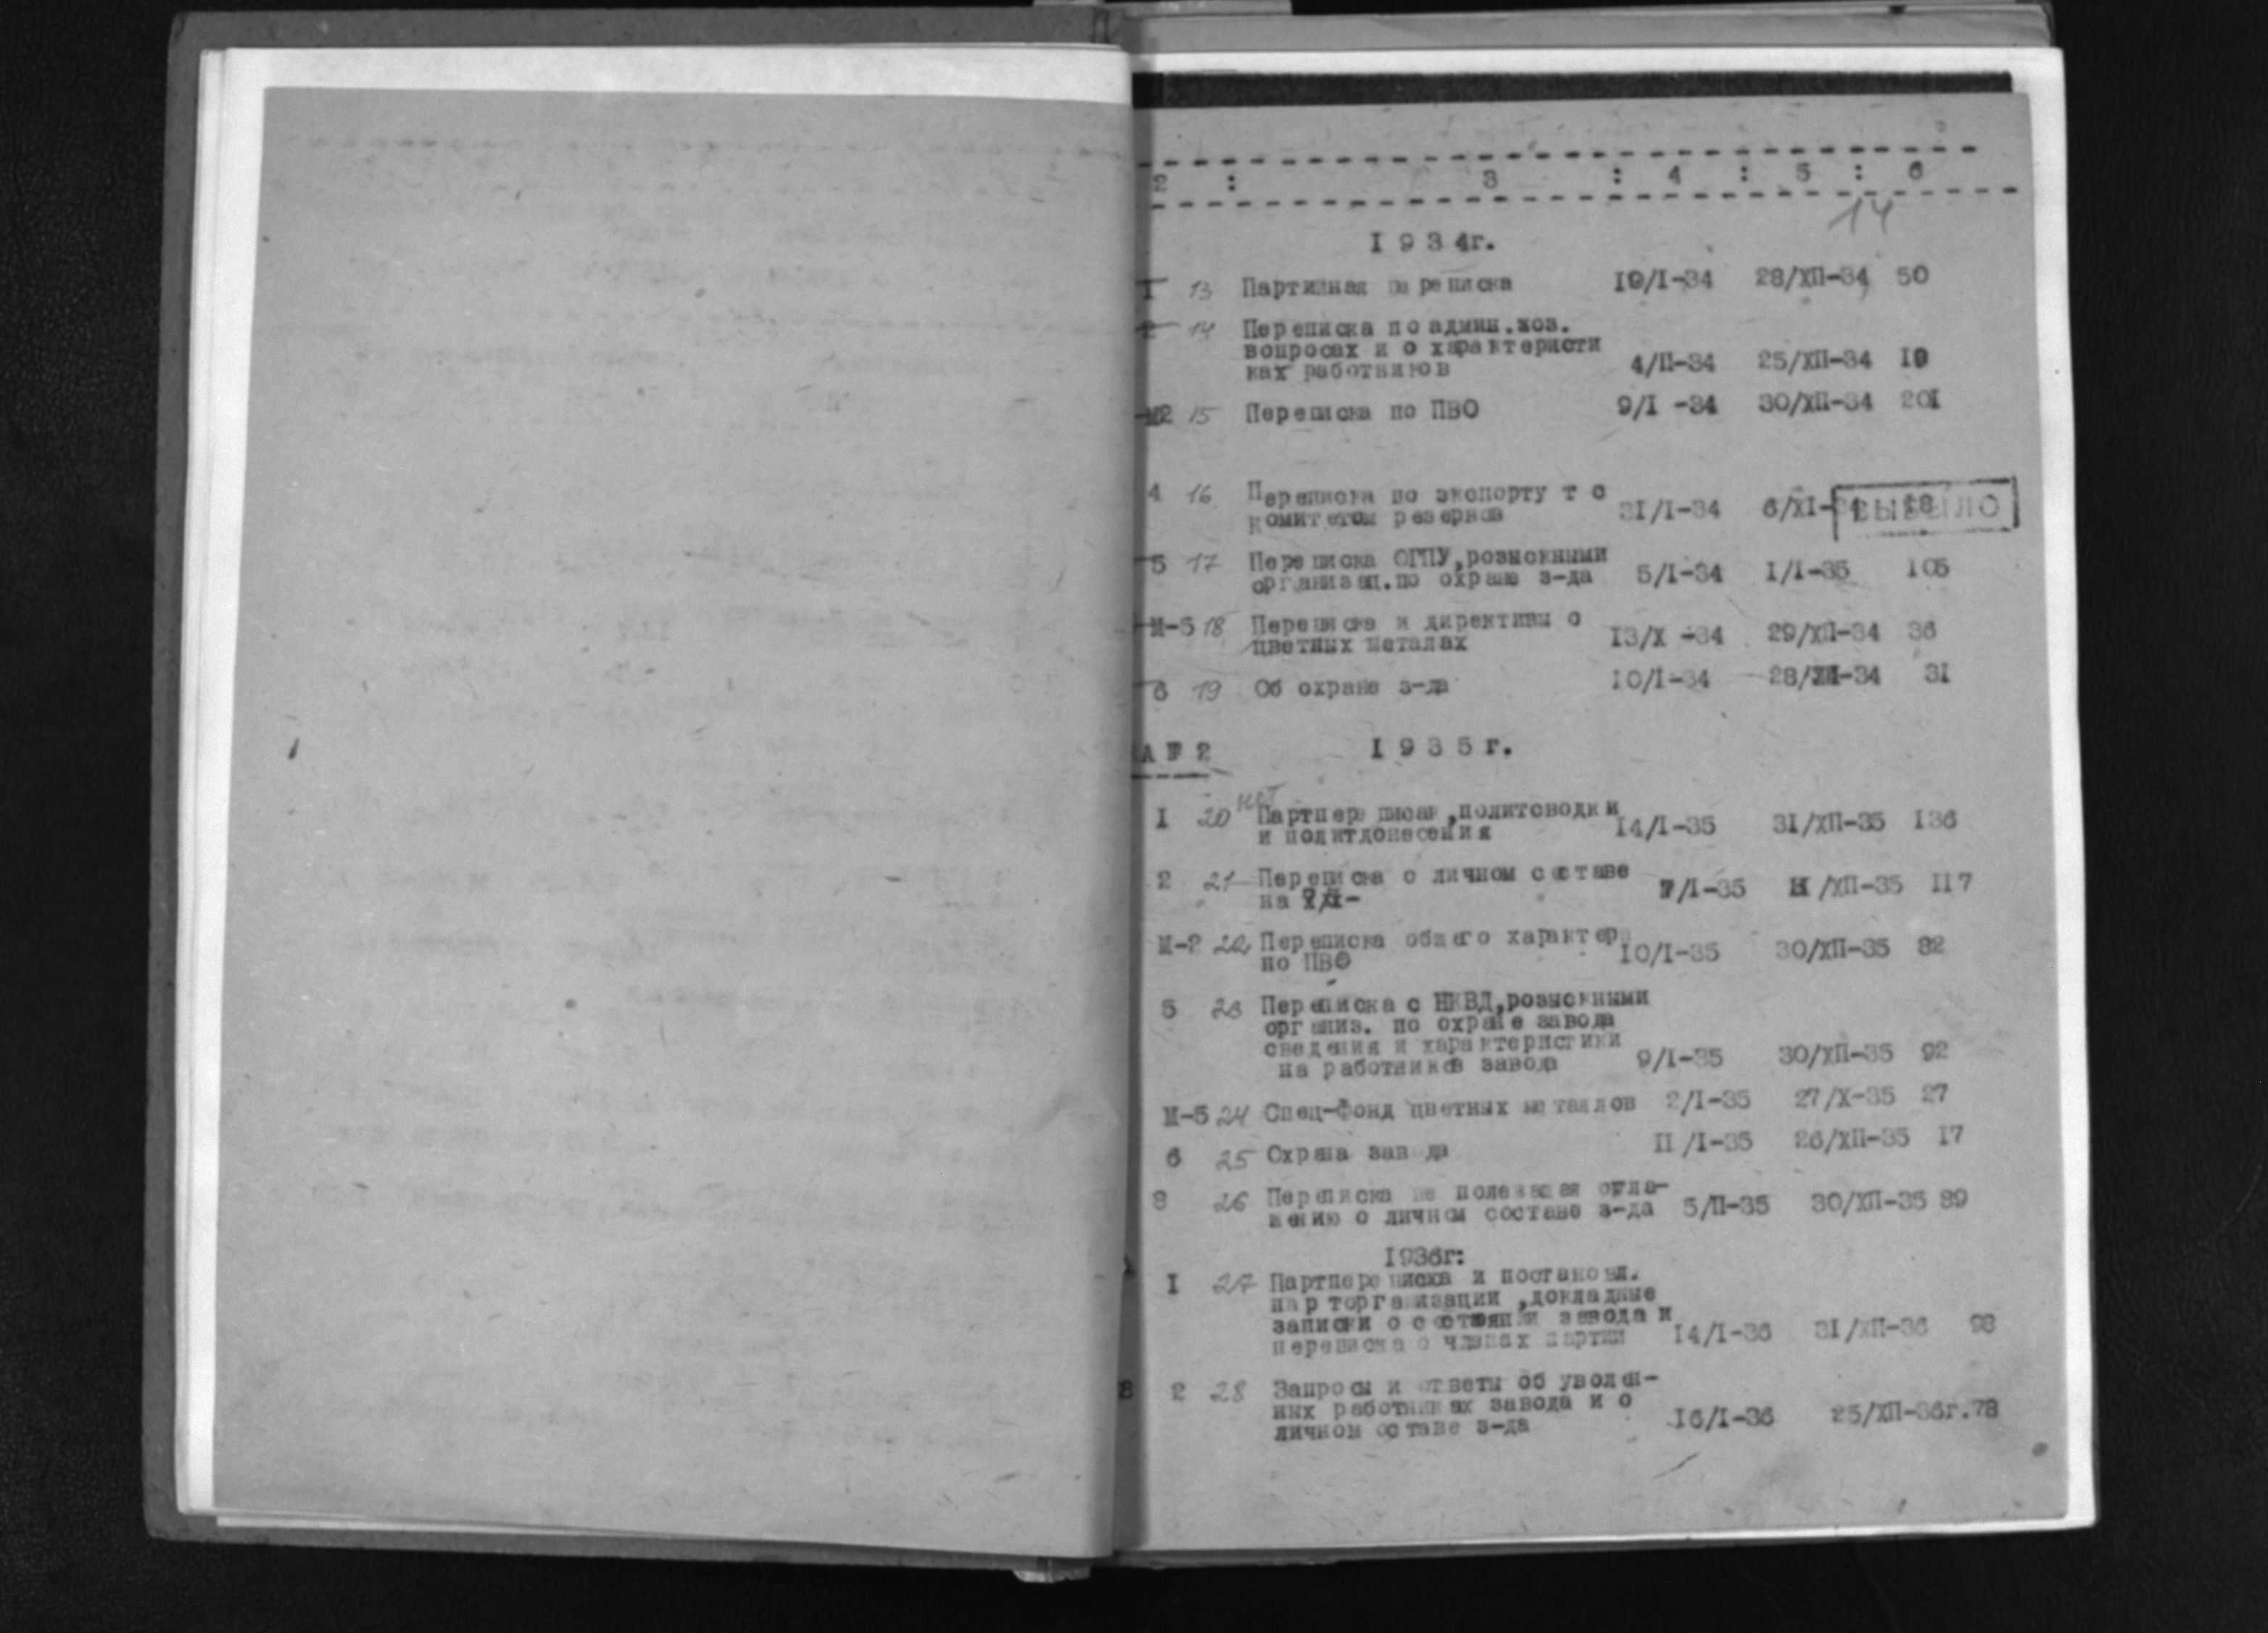 2 : 3 : 4 : 5 : 6
14
1934г.
I 13 Партийная переписка 19/I-34 28/ХП-34 50
2 14 Переписка по админ.хоз.
вопросах и о характеристи
ках работников 4/П-34 25/ХП-34 19
М2 15 Переписка по ПВО 9/I -34 30/ХП-34 201
4 16 Переписка по экспорту т с
комитетом резервов 31/I-34 6/XI-34 18
ВЫБЫЛО
5 17 Переписка ОГПУ,розыскными
организац.по охране з-да 5/I-34 I/I-35 105
М-5 18 Переписка и директивы о
цветных металах 13/X -34 29/ХП-34 36
6 19 Об охране з-да 10/I-34 28/ХП-34 31
А F 2 1935г.
I 20 нет Партпереписк,политсводки
и политдонесения 14/I-35 31/ХП-35 136
2 21 Переписка о личном составе
на 7/I-35 /ХП-35 117
М-2 22 Переписка общего характер
по ПВО 10/I-35 30/ХП-35 82
5 23 Переписка с НКВД,розыскными
организ. по охране завода
сведения и характеристики
на работников завода 9/I-35 30/ХП-35 92
М-5 24 Спец-Фонд цветных металлов 2/I-35 27/X-35 27
6 25 Охрана завода II/I-35 26/ХП-35 17
8 26 Переписка не полежащая огла-
жению о личном составе з-да 5/П-35 30/ХП-35 89
1936г:
I 27 Партпереписка и постановл.
парторганизации ,докладные
записки о состоянии завода и
переписка о членах партии 14/I-36 31/ХП-36 98
В 2 28 Запросы и ответы об уволен-
ных работниках завода и о
личном оставе з-да 16/I-36 25/ХП-36г.78